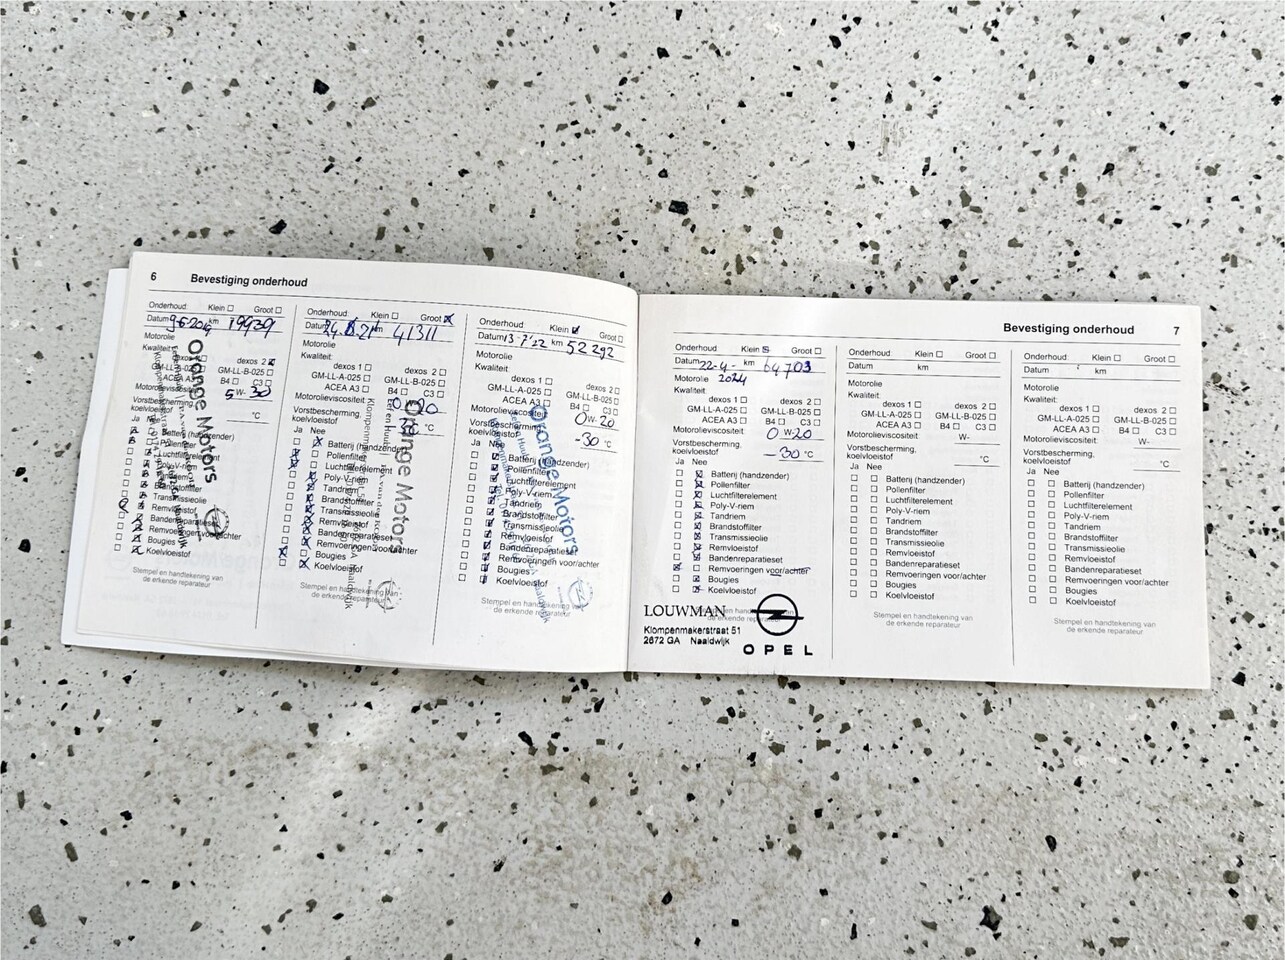 6 Bevestiging onderhoud
Onderhoud: Klein Groot
Datum 9-6-2019 km 19939
Motorolie
Kwaliteit:
dexos 2
GM-LL-A-025 GM-LL-B-025
ACEA A3 B4 C3
Motorolieviscositeit 5 W- 30
Vorstbescherming,
koelvloeistof °C
Ja Nee
Batterij (handzender)
Pollenfilter
Luchtfilterelement
Poly-V-riem
Tandriem
Brandstoffilter
Transmissieolie
Remvloeistof
Bandenreparatieset
Remvoeringen voor/achter
Bougies
Koelvloeistof
Stempel en handtekening van
de erkende reparateur
Orange Motors
Onderhoud: Klein Groot
Datum km 41311
Motorolie
Kwaliteit:
dexos 1 dexos 2
GM-LL-A-025 GM-LL-B-025
ACEA A3 B4 C3
Motorolieviscositeit 0 W- 20
Vorstbescherming,
koelvloeistof °C
Ja Nee
Batterij (handzender)
Pollenfilter
Luchtfilterelement
Poly-V-riem
Tandriem
Brandstoffilter
Transmissieolie
Remvloeistof
Bandenreparatieset
Remvoeringen voor/achter
Bougies
Koelvloeistof
Stempel en handtekening van
de erkende reparateur
Orange Motors
Onderhoud: Klein Groot
Datum 13-7-'22 km 52292
Motorolie
Kwaliteit:
dexos 1 dexos 2
GM-LL-A-025 GM-LL-B-025
ACEA A3 B4 C3
Motorolieviscositeit 0 W- 20
Vorstbescherming,
koelvloeistof -30 °C
Ja Nee
Batterij (handzender)
Pollenfilter
Luchtfilterelement
Poly-V-riem
Tandriem
Brandstoffilter
Transmissieolie
Remvloeistof
Bandenreparatieset
Remvoeringen voor/achter
Bougies
Koelvloeistof
Stempel en handtekening van
de erkende reparateur
Orange Motors
Bevestiging onderhoud 7
Onderhoud: Klein Groot
Datum 22-4- km 64703
Motorolie 2024
Kwaliteit:
dexos 1 dexos 2
GM-LL-A-025 GM-LL-B-025
ACEA A3 B4 C3
Motorolieviscositeit 0 W- 20
Vorstbescherming,
koelvloeistof -30 °C
Ja Nee
Batterij (handzender)
Pollenfilter
Luchtfilterelement
Poly-V-riem
Tandriem
Brandstoffilter
Transmissieolie
Remvloeistof
Bandenreparatieset
Remvoeringen voor/achter
Bougies
Koelvloeistof
Stempel en handtekening van
de erkende reparateur
LOUWMAN
Klompenmakerstraat 51
2672 GA Naaldwijk
OPEL
Onderhoud: Klein Groot
Datum km
Motorolie
Kwaliteit:
dexos 1 dexos 2
GM-LL-A-025 GM-LL-B-025
ACEA A3 B4 C3
Motorolieviscositeit W-
Vorstbescherming,
koelvloeistof °C
Ja Nee
Batterij (handzender)
Pollenfilter
Luchtfilterelement
Poly-V-riem
Tandriem
Brandstoffilter
Transmissieolie
Remvloeistof
Bandenreparatieset
Remvoeringen voor/achter
Bougies
Koelvloeistof
Stempel en handtekening van
de erkende reparateur
Onderhoud: Klein Groot
Datum km
Motorolie
Kwaliteit:
dexos 1 dexos 2
GM-LL-A-025 GM-LL-B-025
ACEA A3 B4 C3
Motorolieviscositeit W-
Vorstbescherming,
koelvloeistof °C
Ja Nee
Batterij (handzender)
Pollenfilter
Luchtfilterelement
Poly-V-riem
Tandriem
Brandstoffilter
Transmissieolie
Remvloeistof
Bandenreparatieset
Remvoeringen voor/achter
Bougies
Koelvloeistof
Stempel en handtekening van
de erkende reparateur